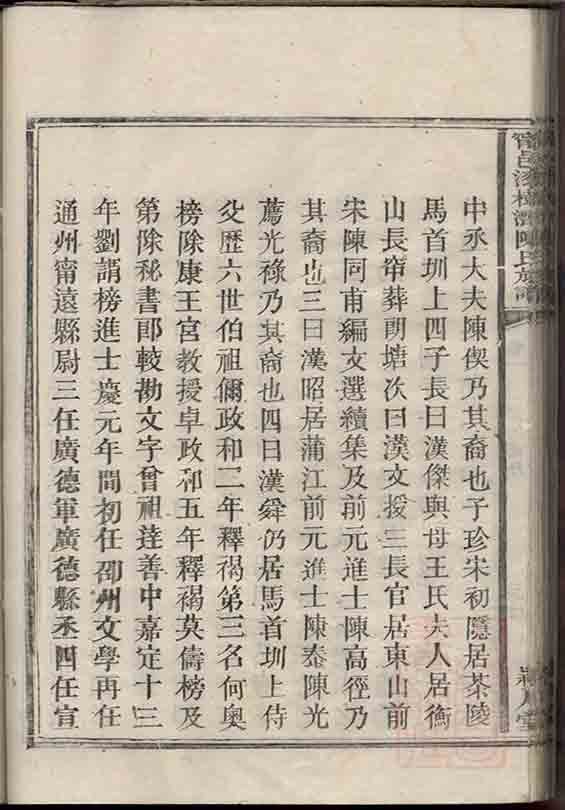 甯邑漆樹灣陳氏族譜
中丞大夫陳偰乃其裔也子珍宋初隱居茶陵
馬首圳上四子長曰漢傑與母王氏夫人居衡
山長窄葬萌塘次曰漢文授三長官居東山前
宋陳同甫編文選續集及前元進士陳高徑乃
其裔也三曰漢昭居蒲江前元進士陳泰陳光
薦光祿乃其裔也四曰漢舜仍居馬首圳上侍
父歷六世伯祖儞政和二年釋褐第三名何奥
榜除康王宮敎授卓政和五年釋褐莫儔榜及
第除秘書郎較勘文字曾祖逹善中嘉定十三
年劉謂榜進士慶元年間初任邵州文學再任
通州甯遠縣尉三任廣德軍廣德縣丞四任宣